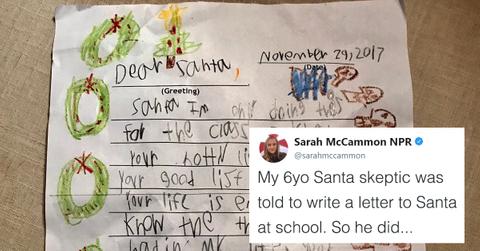 November 29, 2017
(Date)
Dear Santa,
(Greeting)
Santa Im only doing this
for the class
Your notty li
Your good list
Your life is e
Know the t
Sarah McCammon NPR
@sarahmccammon
My 6yo Santa skeptic was
told to write a letter to Santa
at school. So he did...